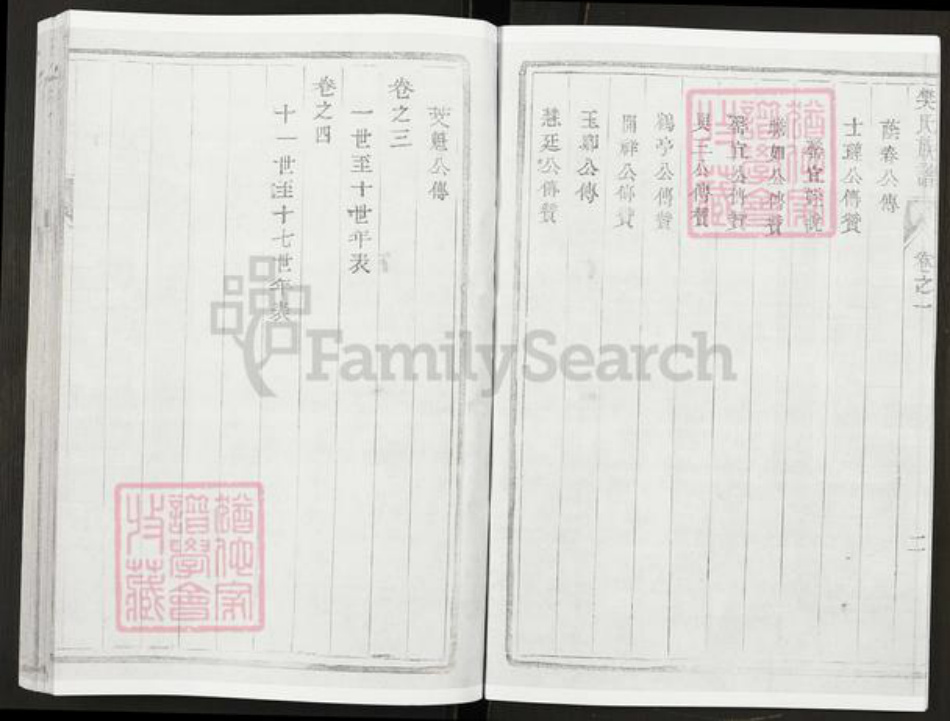 樊氏族譜 卷之一 二
蔭春公傳
士瑾公傳贊
公傳贊
宜公傳贊
三公傳贊
鶴亭公傳贊
開祥公傳贊
玉卿公傳
慧廷公傳贊
英魁公傳
卷之三
一世至十世年表
卷之四
十一世至十七世年表
FamilySearch
猶他家
譜學會
收藏
猶他家
譜學會
收藏